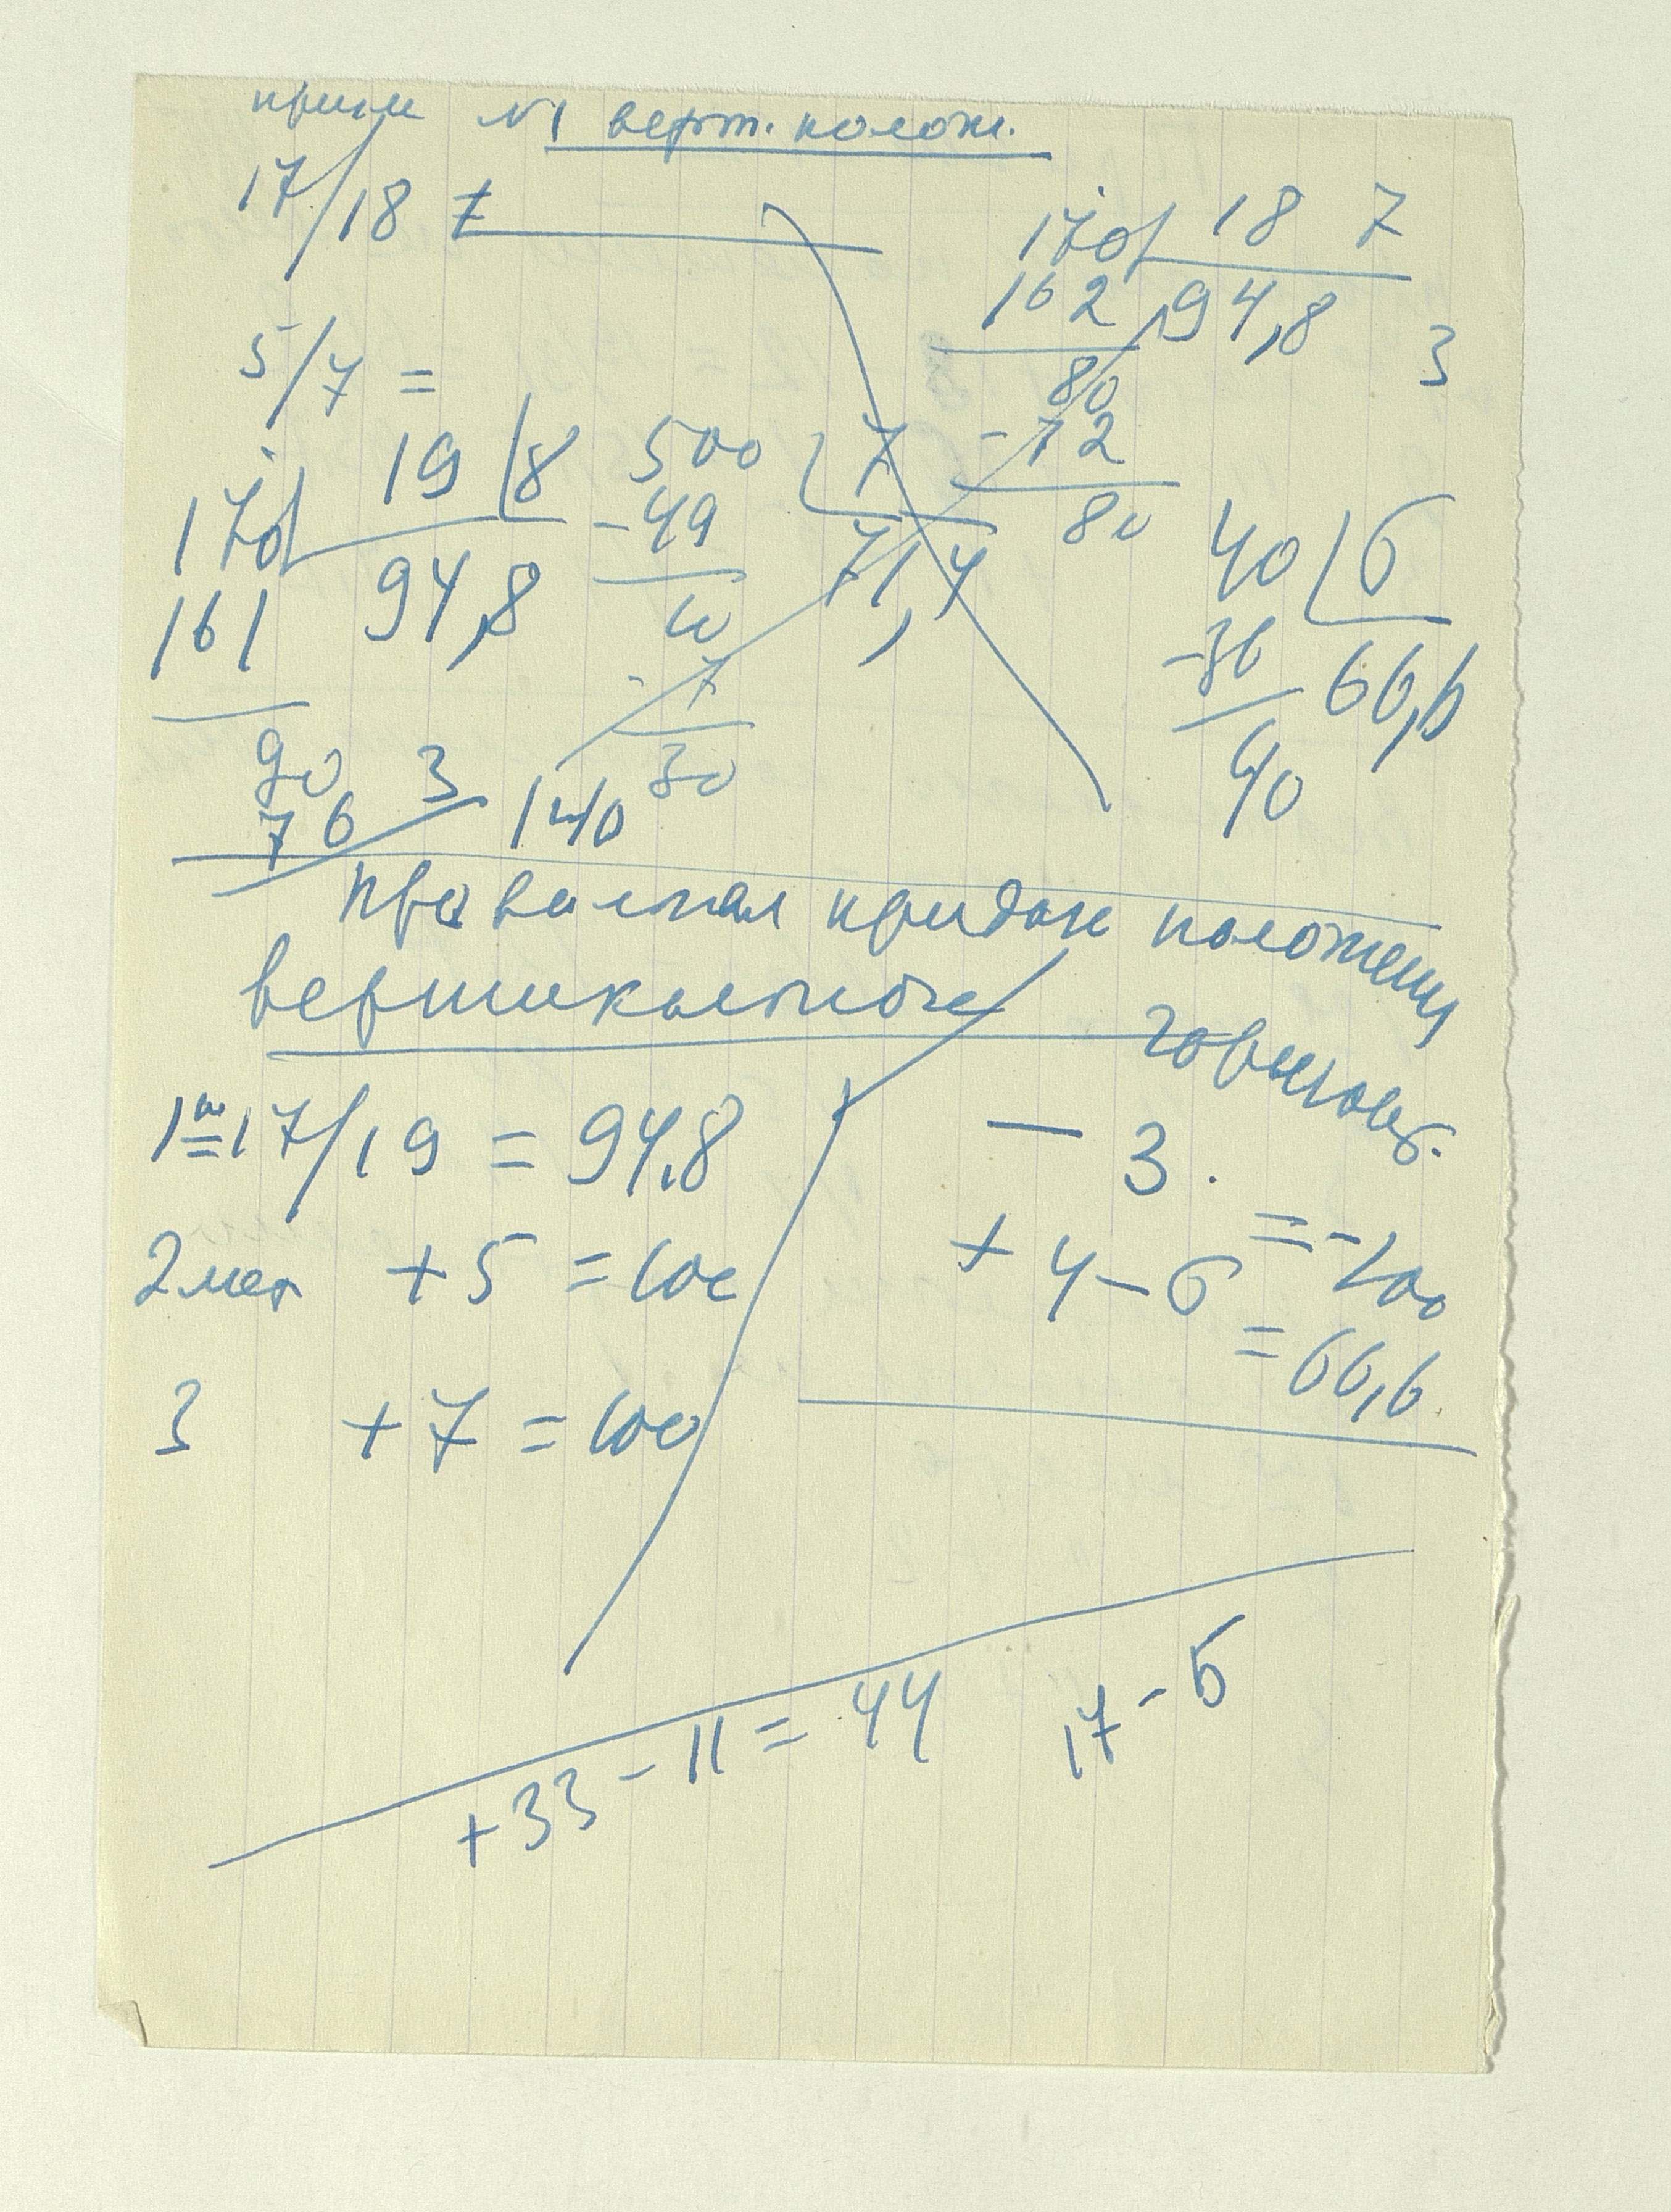 №1 верт. полож.
17/18 =
170 18 7
162 94,8 3
80
5/7 =
-72
80
170 19 8
161 94,8
90
76 3
500 7
-49 71,4
10
-7
30
140
40 6
-36 66,6
40
положения
вертикальное
горизонт.
17/19 = 94,8
- 3.
2 мес + 5 = 100
+ 4 - 6 = -200
= 66,6
3 + 7 = 100
+33 - 11 = 44 17 - 5